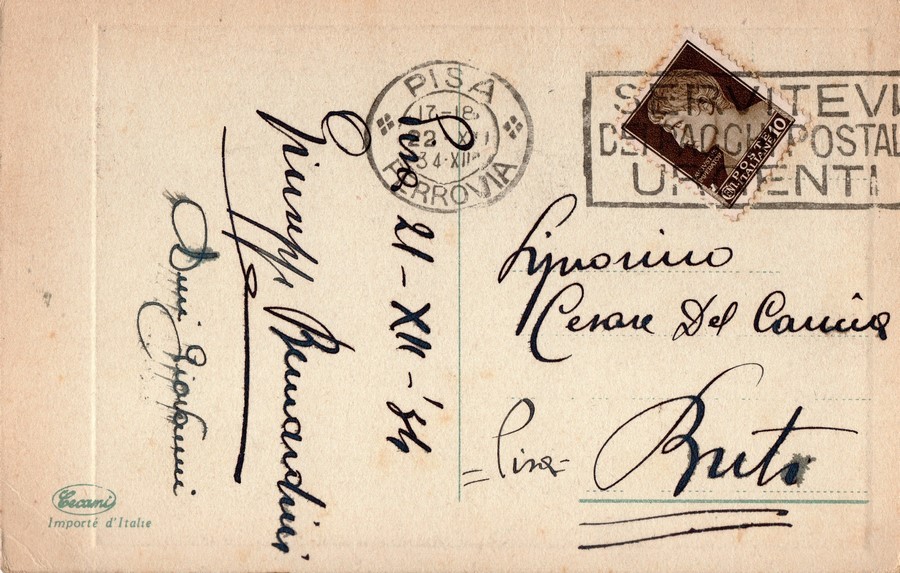 PISA
17-18
22 XII
34·XIII
FERROVIA
SERVITEVI
DEI PACCHI POSTAL
URGENTI
POSTE
ITALIANE
10
Pisa 21-XII-'34
Giuseppe Bernardini
Signorino
Cesare Del Carlo
=Pisa=
Buti
Cecami
Importé d'Italie